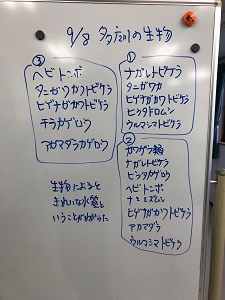 9/8 多々良川の生物
③
ヘビトンボ
タニガワカゲロウ
ヒゲナガカワトビケラ
チラカゲロウ
アカマダラカゲロウ
生物によると
きれいな水質と
いうことがわかった
①
ナガレトビケラ
タニガワカ
ヒゲナガカワトビケラ
ヒラタドロムシ
ウルマーシマトビケラ
②
カワゲラ類
ナガレトビケラ
ヒラタカゲロウ
ヘビトンボ
ナミウズムシ
ヒゲナガカワトビケラ
アカマダラ
ウルマーシマトビケラ